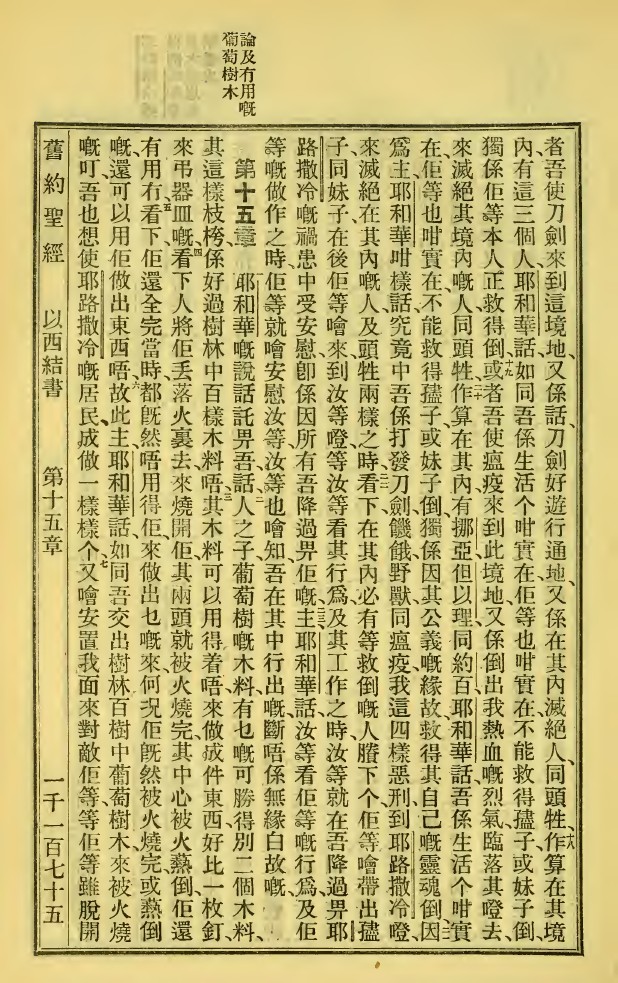 論及有用嘅
葡萄樹木
者吾使刀劍來到這境地、又係話刀劍好遊行通地、又係在其內滅絕人、同頭牲、作算在其境
內、有這三個人、耶和華話、如同吾係生活个咁實在佢等也咁實在不能救得孻子或妹子倒、
獨係佢等本人正救得倒、或者吾使瘟疫來到此境地、又係倒出我熱血嘅烈氣臨落其嶝去、
來滅絕其境內嘅人同頭牲、作算在其內有挪亞但以理同約百、耶和華話、吾係生活个咁實
在、佢等也咁實在不能救得孻子或妹子倒、獨係因其公義嘅緣故救得其自己嘅靈魂倒、因
爲主耶和華咁樣話、究竟中吾係打發刀劍饑餓野獸同瘟疫我這四樣惡刑到耶路撒冷嶝、
來滅絕在其內嘅人及頭牲兩樣之時、看下在其內必有等救倒嘅人賸下个、佢等噲帶出孻
子同妹子在後佢等噲來到汝等嶝、汝等看其行爲及其工作之時、汝等就在吾降過畀耶
路撒冷嘅禍患中受安慰、卽係因所有吾降過畀佢嘅、主耶和華話、汝等看佢等嘅行爲及佢
等嘅做作之時、佢等就噲安慰汝等、汝等也噲知吾在其中行出嘅斷唔係無緣白故嘅、
第十五章 耶和華嘅說話託畀吾話、人之子葡萄樹嘅木料、有乜嘅可勝得別二個木料、
其這樣枝桍係好過樹林中百樣木料唔、其木料可以用得着唔、來做成件東西好比一枚釘、
來弔器皿嘅、看下人將佢丟落火裏去來燒開佢、其兩頭就被火燒完、其中心被火熱倒、佢還
有用冇、看下佢還全完當時、都旣然唔用得佢來做出乜嘅來、何況佢旣然被火燒完或熱倒
嘅、還可以用佢做出東西唔、故此主耶和華話、如同吾交出樹林百樹中葡萄樹木來被火燒
嘅、叮吾也想使耶路撒冷嘅居民、成做一樣樣个、又噲安置我面來對敵佢等、等佢等雖脫開
舊約聖經 以西結書 第十五章 一千一百七十五